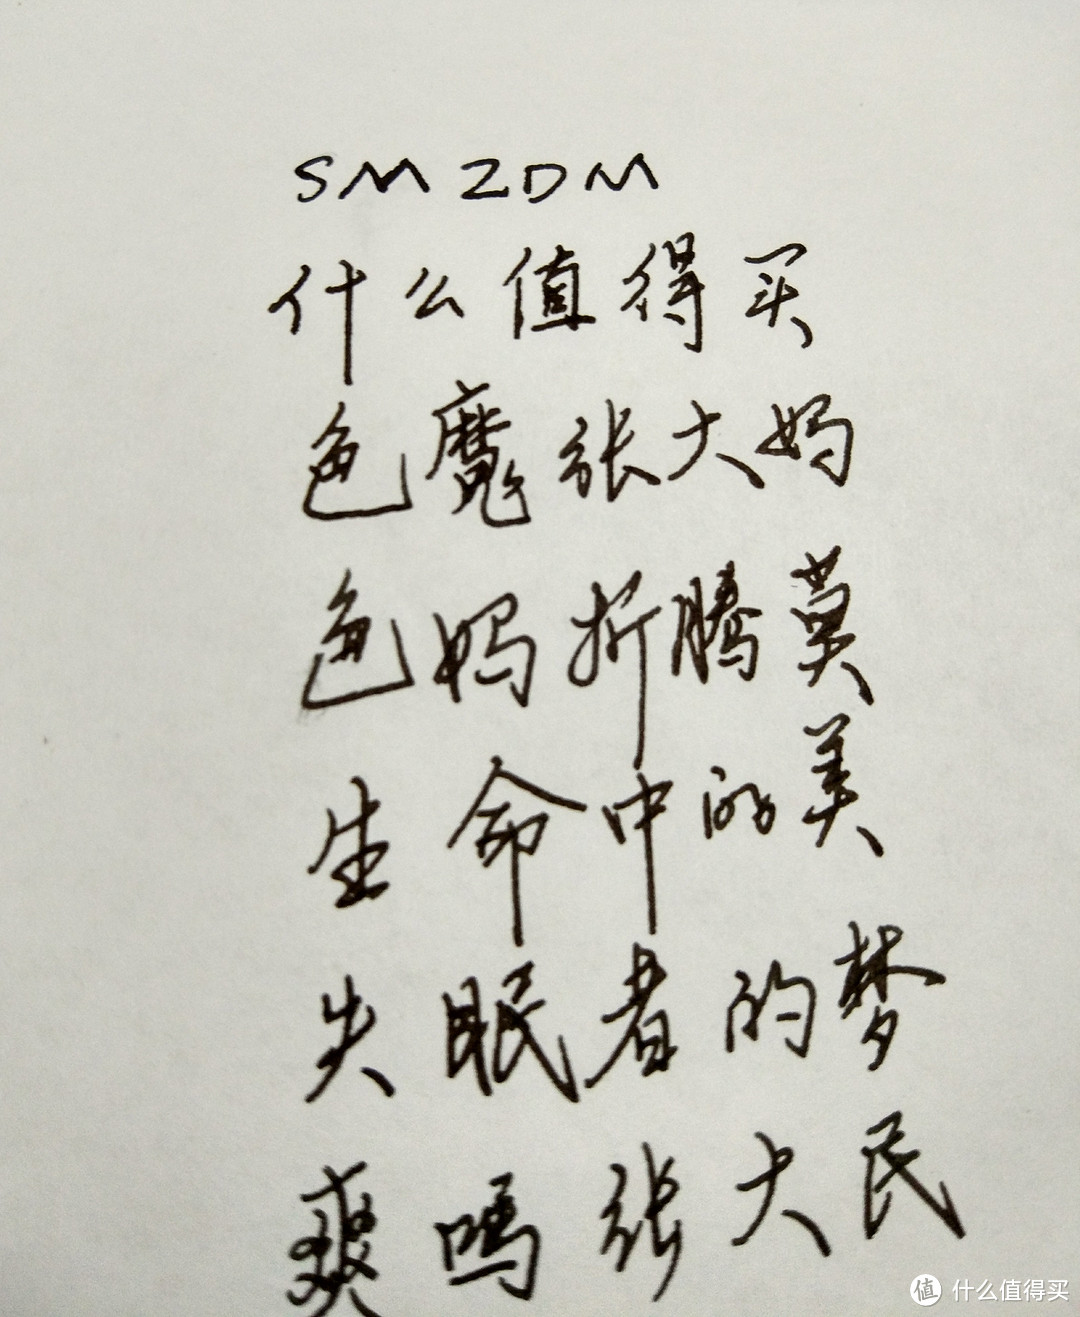 SMZDM
什么值得买
色魔张大妈
色妈折腾莫
生命中的美
失眠者的梦
爽吗张大民
值 什么值得买